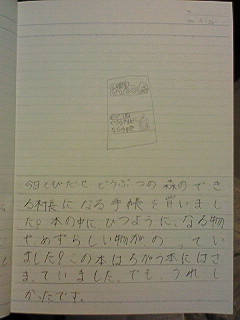 今日とびだせどうぶつの森のでき
る村長になる手帳を買いまし
た。本の中に、ひつように、なる物
やめずらしい物がの、てい
ました。この本はちがう本にはさ
ま、ていました。でも、うれし
かったです。